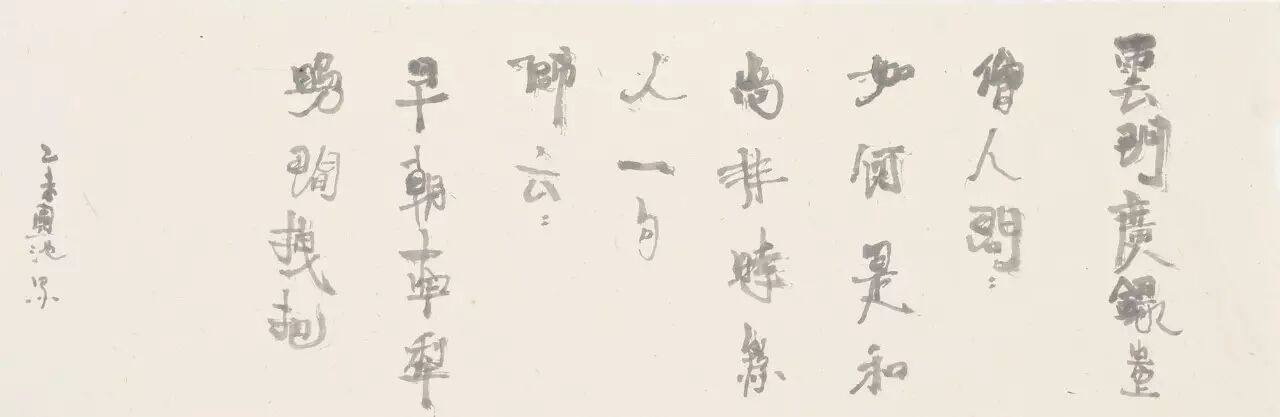 雲門廣錄
僧人問：
如何是和
尚非時為
人一句
師云：
早朝牽犁
晚間拽把
乙未